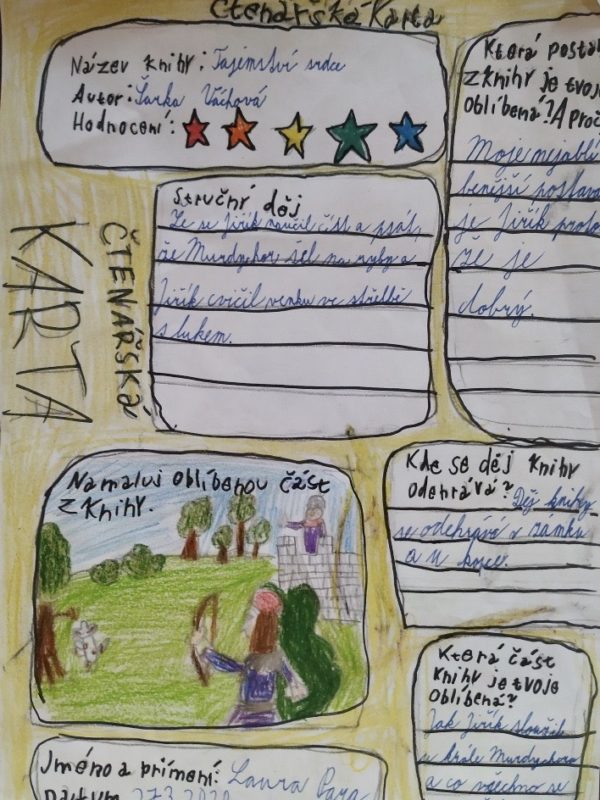 Čtenářská Karta
Název knihy: Tajemství srdce
Autor: Šárka Váchová
Hodnocení:
Která posta
z knihy je tvoje
oblíbená? A proč
Moje nejoblí
benější postava
je Jiřík proto
že je
dobrý.
Stručný děj
Že se Jiřík naučil číst a psát,
že Murdychor šel na ryby a
Jiřík cvičil venku ve střelbě
s lukem.
ČTENÁŘSKÁ
KARTA
Namaluj oblíbenou část
z knihy.
Kde se děj knihy
odehrává? Děj knihy
se odehrává v zámku
a u
Která část
knihy je tvoje
oblíbená?
Jak Jiřík sloužil
u krále Murdychora
a co všechno se
Jméno a přímení: Laura
Datum